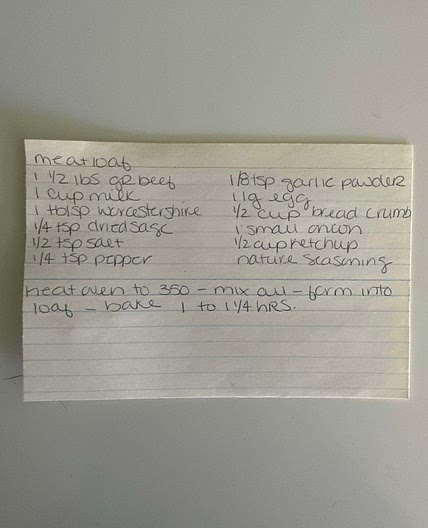 meatloaf
1 1/2 lbs gr beef
1 cup milk
1 tblsp worcestershire
1/4 tsp dried sage
1/2 tsp salt
1/4 tsp pepper
1/8 tsp garlic powder
1 lg egg
1/2 cup bread crumb
1 small onion
1/2 cup ketchup
nature seasoning
heat oven to 350 - mix all - form into
loaf - bake 1 to 1 1/4 hrs.